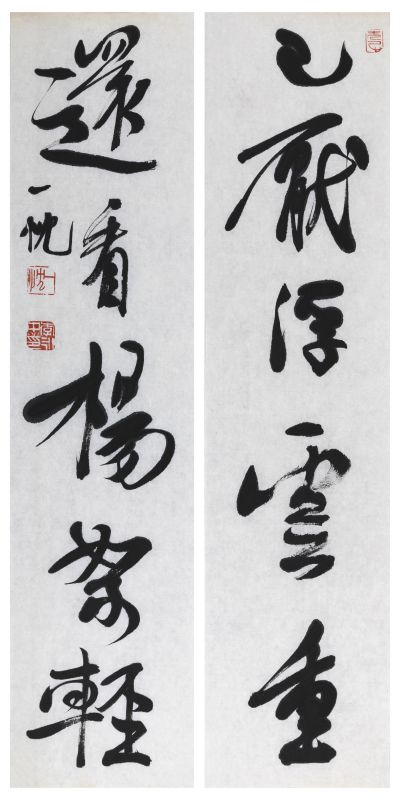 已厭浮雲重
還看楊絮輕
一忱